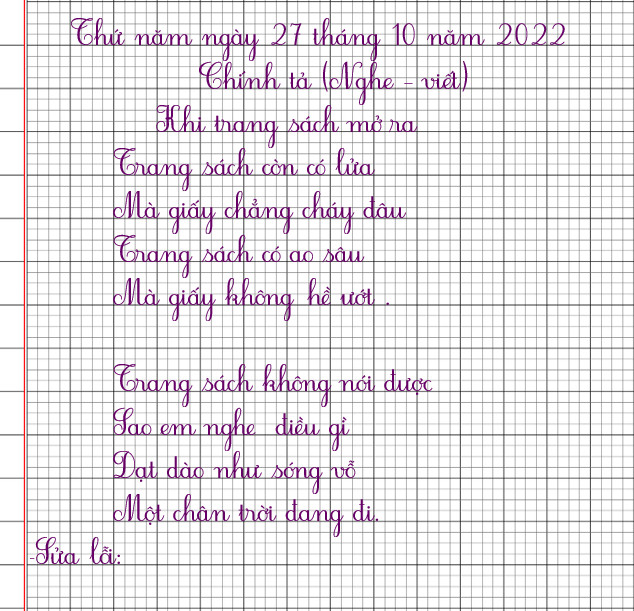 Thứ năm ngày 27 tháng 10 năm 2022
Chính tả (Nghe - viết)
Khi trang sách mở ra
Trang sách còn có lửa
Mà giấy chẳng cháy đâu
Trang sách có ao sâu
Mà giấy không hề ướt .
Trang sách không nói được
Sao em nghe điều gì
Dạt dào như sóng vỗ
Một chân trời đang đi.
-Sửa lỗi: